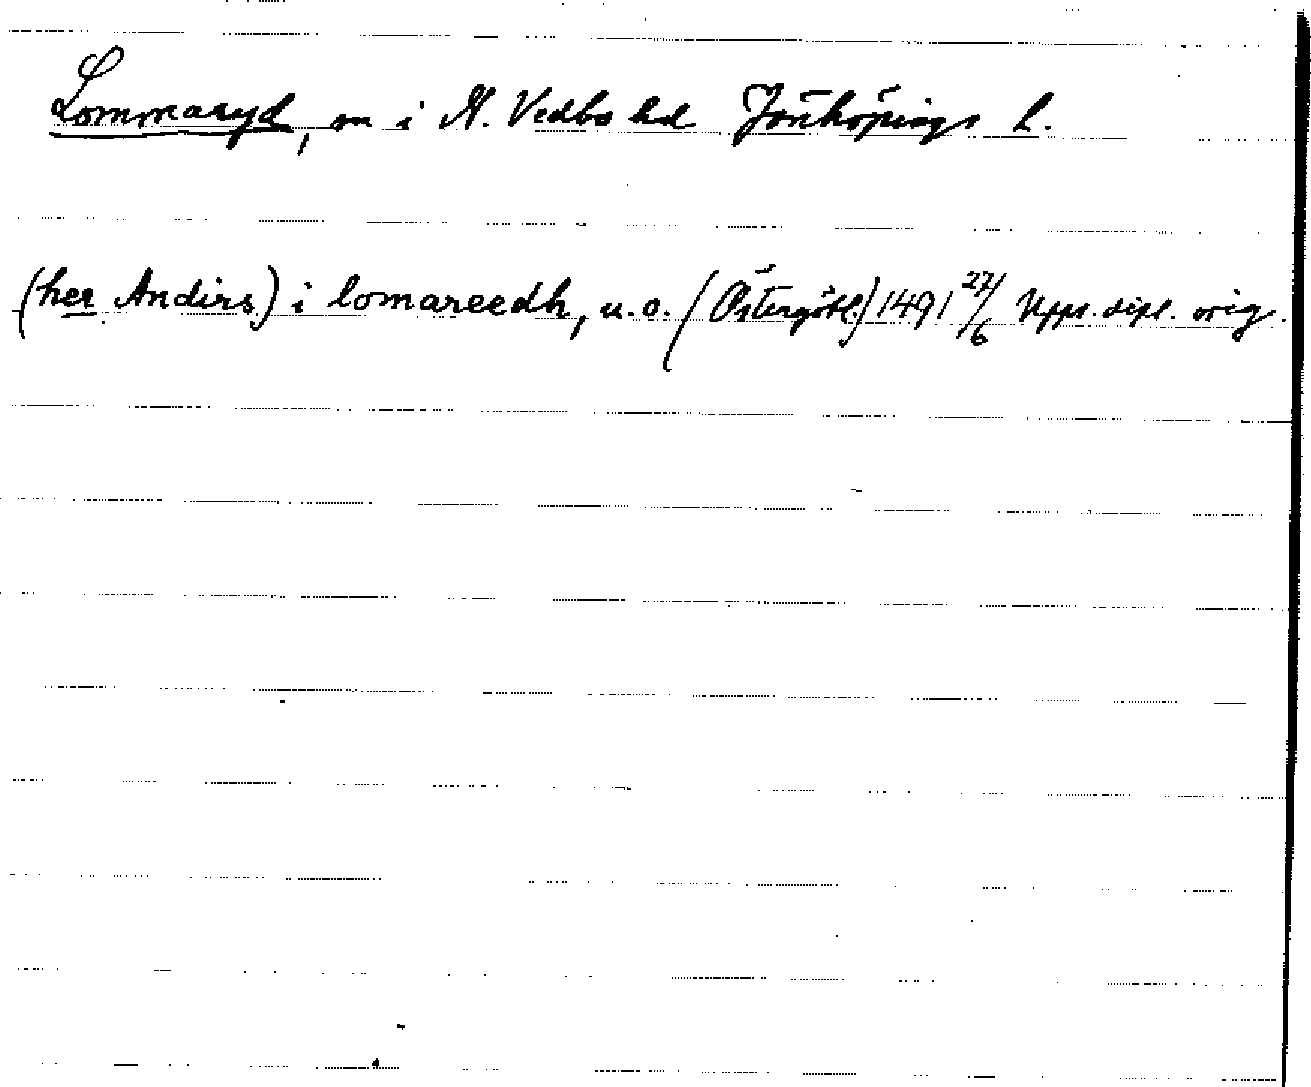 Lommaryd, sn i N. Vedbo hd Jönköpings l.
(her Andirs) i lomareedh, u.o. (Östergötl.) 1491 27/6 Upps. dipl. orig.